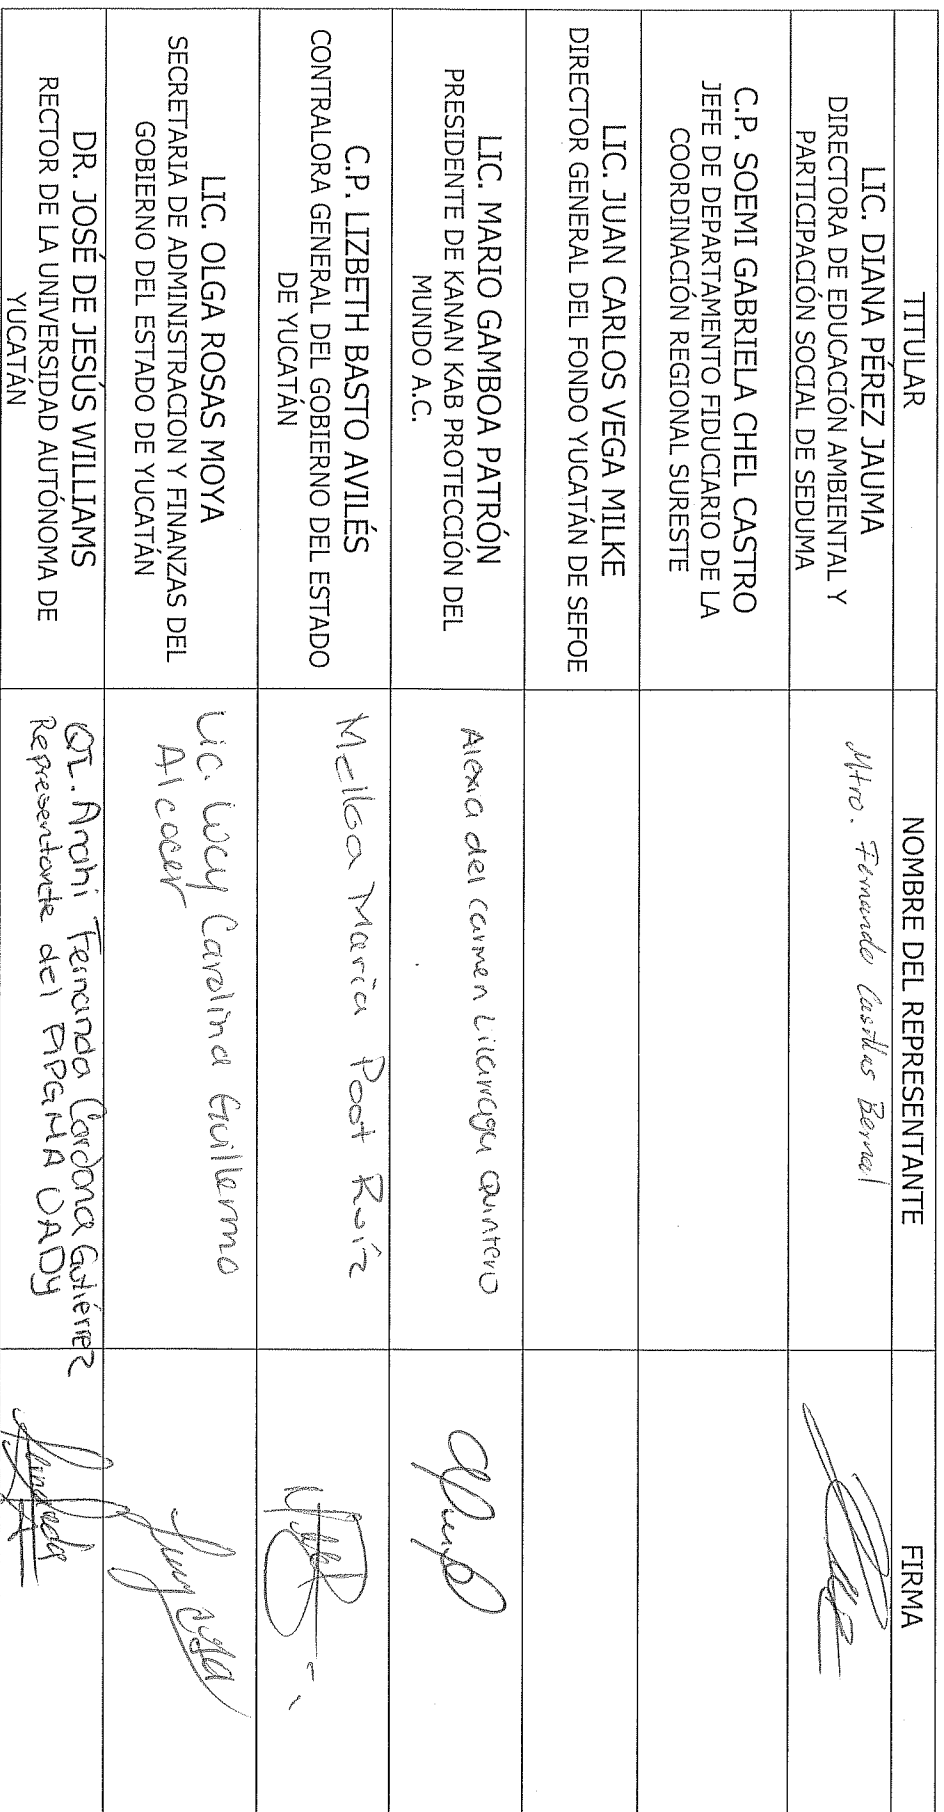 TITULAR
NOMBRE DEL REPRESENTANTE
FIRMA
LIC. DIANA PÉREZ JAUMA
DIRECTORA DE EDUCACIÓN AMBIENTAL Y
PARTICIPACIÓN SOCIAL DE SEDUMA
Mtro. Fernando Casillas Bernal
C.P. SOEMI GABRIELA CHEL CASTRO
JEFE DE DEPARTAMENTO FIDUCIARIO DE LA
COORDINACIÓN REGIONAL SURESTE
LIC. JUAN CARLOS VEGA MILKE
DIRECTOR GENERAL DEL FONDO YUCATÁN DE SEFOE
LIC. MARIO GAMBOA PATRÓN
PRESIDENTE DE KANAN KAB PROTECCIÓN DEL
MUNDO A.C.
Alexia del carmen Lilarraga Quintero
C.P. LIZBETH BASTO AVILÉS
CONTRALORA GENERAL DEL GOBIERNO DEL ESTADO
DE YUCATÁN
Melba María Poot Ruíz
LIC. OLGA ROSAS MOYA
SECRETARIA DE ADMINISTRACION Y FINANZAS DEL
GOBIERNO DEL ESTADO DE YUCATÁN
Lic. Lucy Carolina Guillermo
Alcocer
DR. JOSÉ DE JESÚS WILLIAMS
RECTOR DE LA UNIVERSIDAD AUTÓNOMA DE
YUCATÁN
QI. Anahi Fernanda Cardona Gutiérrez
Representante del PIPGMA UADY